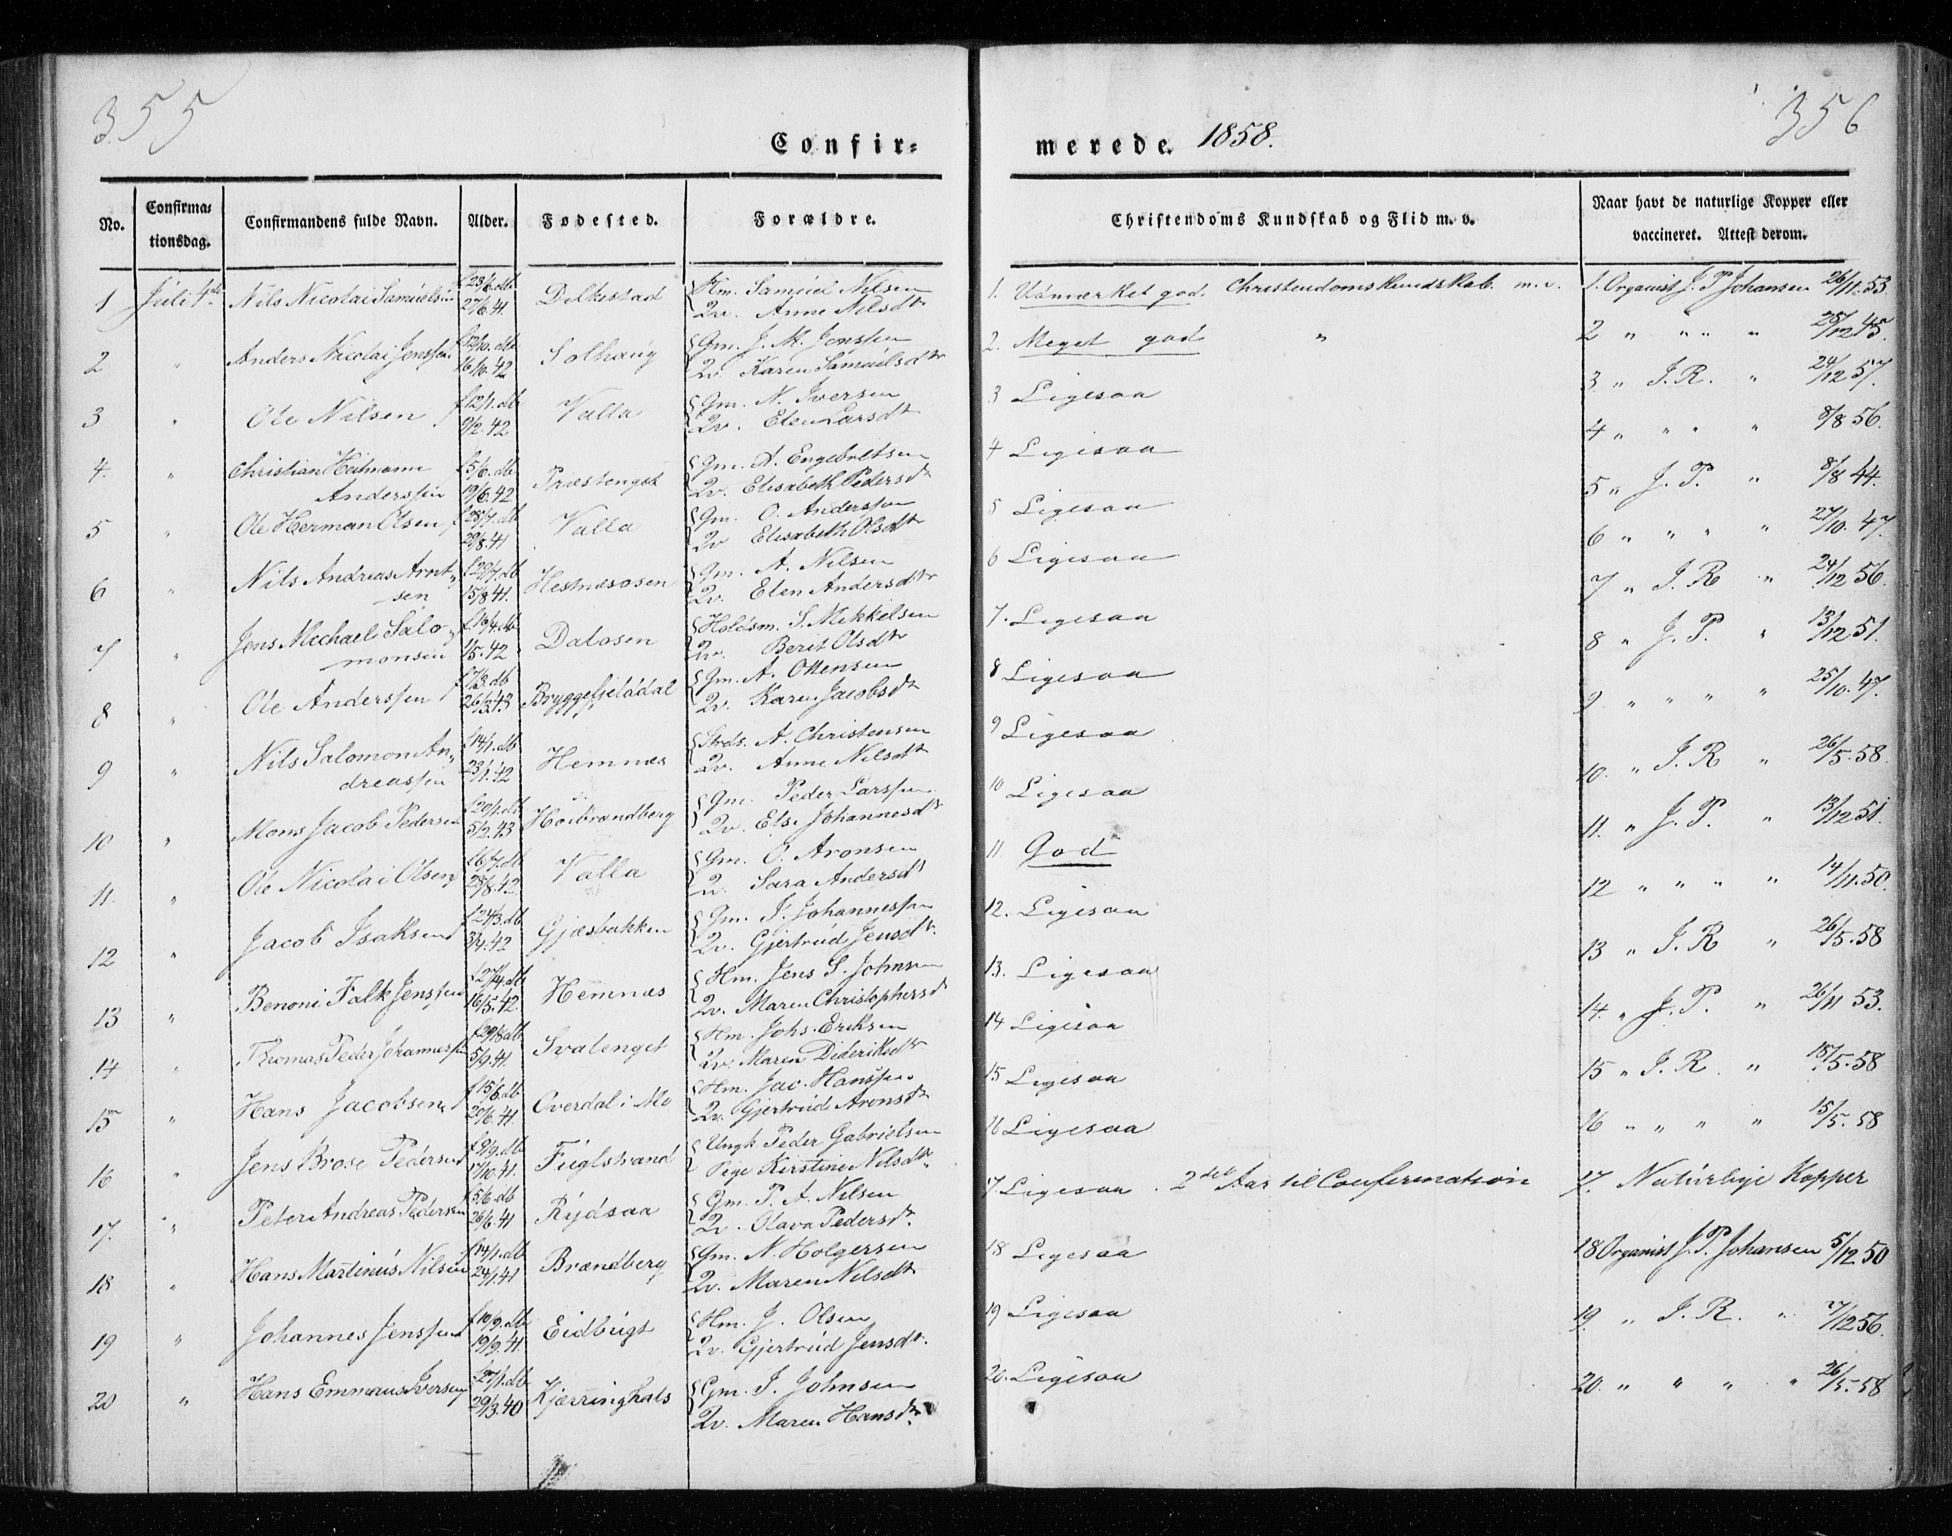 355
356
Confir=
merede. 1858.
No.
Confirma=
tionsdag.
Confirmandens fulde Navn.
Alder.
Fødested.
Forældre.
Christendoms Kundskab og Flid m. v.
Naar havt de naturlige Kopper eller
vaccineret. Attest derom.
1 Juli 4de Nils Nicolai Samuelsen f 23/6. db 27/6 41 Dilkestad Hm. Samuel Nilsen
Qv. Anne Nilsdtr
2 " Anders Nicolai Jenssen f 12/10. db 16/10. 42 Solhaug Gm. J. M. Jenssen
Qv Karen Samuelsdtr
3 " Ole Nilsen f 12/1. db 9/2. 42 Valla Gm. N. Iversen
Qv. Elen Larsdtr
4. " Christian Heitmann
Anderssen f 5/6. db 19/6. 42 Præstenget Gm. A. Engebretsen
Qv. Elisabeth Pedersdtr
5 " Ole Herman Olsen f 28/7. db 29/8. 41 Valla Gm. O. Anderssen
Qv Elisabeth Olsdtr
6 " Nils Andreas Arnt
sen f 20/7. db 15/8 41. Hestnæsosen Gm. A. Nilsen
Qv. Elen Andersdtr
7 " Jens Mechael Salo
monsen f. 16/4. db 1/5. 42 Dalosen Holdsm. S. Mekkelsen
Qv. Berit Olsdtr
8 " Ole Anderssen f 17/3. db 26/3. 43 Bryggefjelddal Gm. A. Ottensen
Qv. Karen Jacobsdtr
9 " Nils Salomon An
dreassen f 14/1. db 23/1. 42 Hemnæs Strds. A. Christensen
Qv. Anne Nilsdtr
10 " Mons Jacob Pedersen f 20/1. db 5/2. 43 Høibrandberg Gm. Peder Larssen
Qv. Els. Johannesdtr
11. " Ole Nicolai Olsen f 16/7. db 28/8. 42 Valla Gm. O. Aronsen
Qv. Sara Andersdtr
12 " Jacob Isaksen f 24/3. db 3/4. 42 Gjæsbakken Gm. I. Johannessen
Qv. Gjertrud Jensdtr.
13 " Benoni Falk Jenssen f 27/4. db 16/5. 42. Hemnæs Hm. Jens S. Johnsen
Qv. Maren Christophersdtr
14 " Thomas Peder Johannessen f 29/8 db 5/9. 41 Svalenget Hm. Johs. Eriksen
Qv. Maren Dideriksdtr
15 " Hans Jacobsen f 15/6. db 20/6. 41 Overdal i Mo Hm. Jac. Hanssen
Qv. Gjertrud Aronsdtr
16 " Jens Brose Pedersen f 9/9. db 17/10. 41. Fuglstrand Ungk. Peder Gabrielsen
Pige Kirstine Nilsdtr.
17. " Peter Andreas Pedersen f 5/6. db 26/6. 41 Rydsaa Gm. P. A. Nilsen
Qv. Olava Pedersdtr.
18 " Hans Martinus Nilsen f 14/1. db 24/1 41 Brændberg Gm. N. Holgersen
Qv. Maren Nilsdtr
19 " Johannes Jenssen f 10/9. db 19/9. 41 Eidbugt Hm. J. Olsen
Qv. Gjertrud Jensdtr.
20 " Hans Emmaus Iversen f 27/1. db 29/3. 40 Kjærringhals Gm. I. Johnsen
Qv. Maren Hansdtr.
1. Udmærket god. Christendomskundskab. m. v. 1. Organist J. P. Johansen 26/11. 53.
2. Meget god " 2 " " " " 28/12 45.
3 Ligesaa 3 " I. R. " 24/12 57.
4 Ligesaa 4 " " " " 8/8 56.
5 Ligesaa 5 " J. P. " 8/8 44.
6 Ligesaa 6 " " " " 27/10. 47.
7. Ligesaa 7 " I. R " 24/12 56.
8 Ligesaa 8 " J. P. " 13/12 51.
9 Ligesaa 9. " " " " 25/10. 47.
10 Ligesaa 10. " I. R " 26/5. 58.
11 God 11. " J. P. " 13/12 51.
12. Ligesaa 12 " " " " 14/11. 50.
13. Ligesaa 13 " I. R " 26/5. 58
14 Ligesaa 14. " J. P. " 26/11 53.
15 Ligesaa 15 " I. R. " 18/5. 58
16 Ligesaa 16 " " " " 15/5. 58
17 Ligesaa. 2det Aar til Confirmation 17. Naturlige Kopper
18 Ligesaa 18 Organist J. P. Johansen 5/12 50
19 Ligesaa 19. " I. R. " 7/12 56.
20. Ligesaa 20. " " " " 26/5. 58